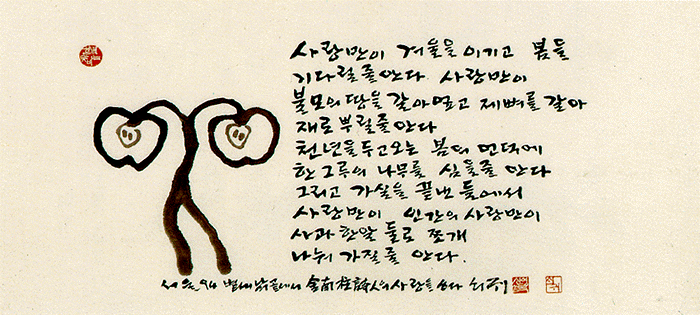 사랑만이 겨울을 이기고 봄을
기다릴줄 안다 사랑만이
불모의 땅을 갈아엎고 제뼈를 갈아
재로 뿌릴줄 안다
천년을 두고오는 봄의 언덕에
한그루의 나무를 심을줄 안다
그리고 가실을 끝낸 들에서
사랑만이 인간의 사랑만이
사과 한알 둘로 쪼개
나눠 가질줄 안다.
金南柱 詩人의 사랑을 쓰다